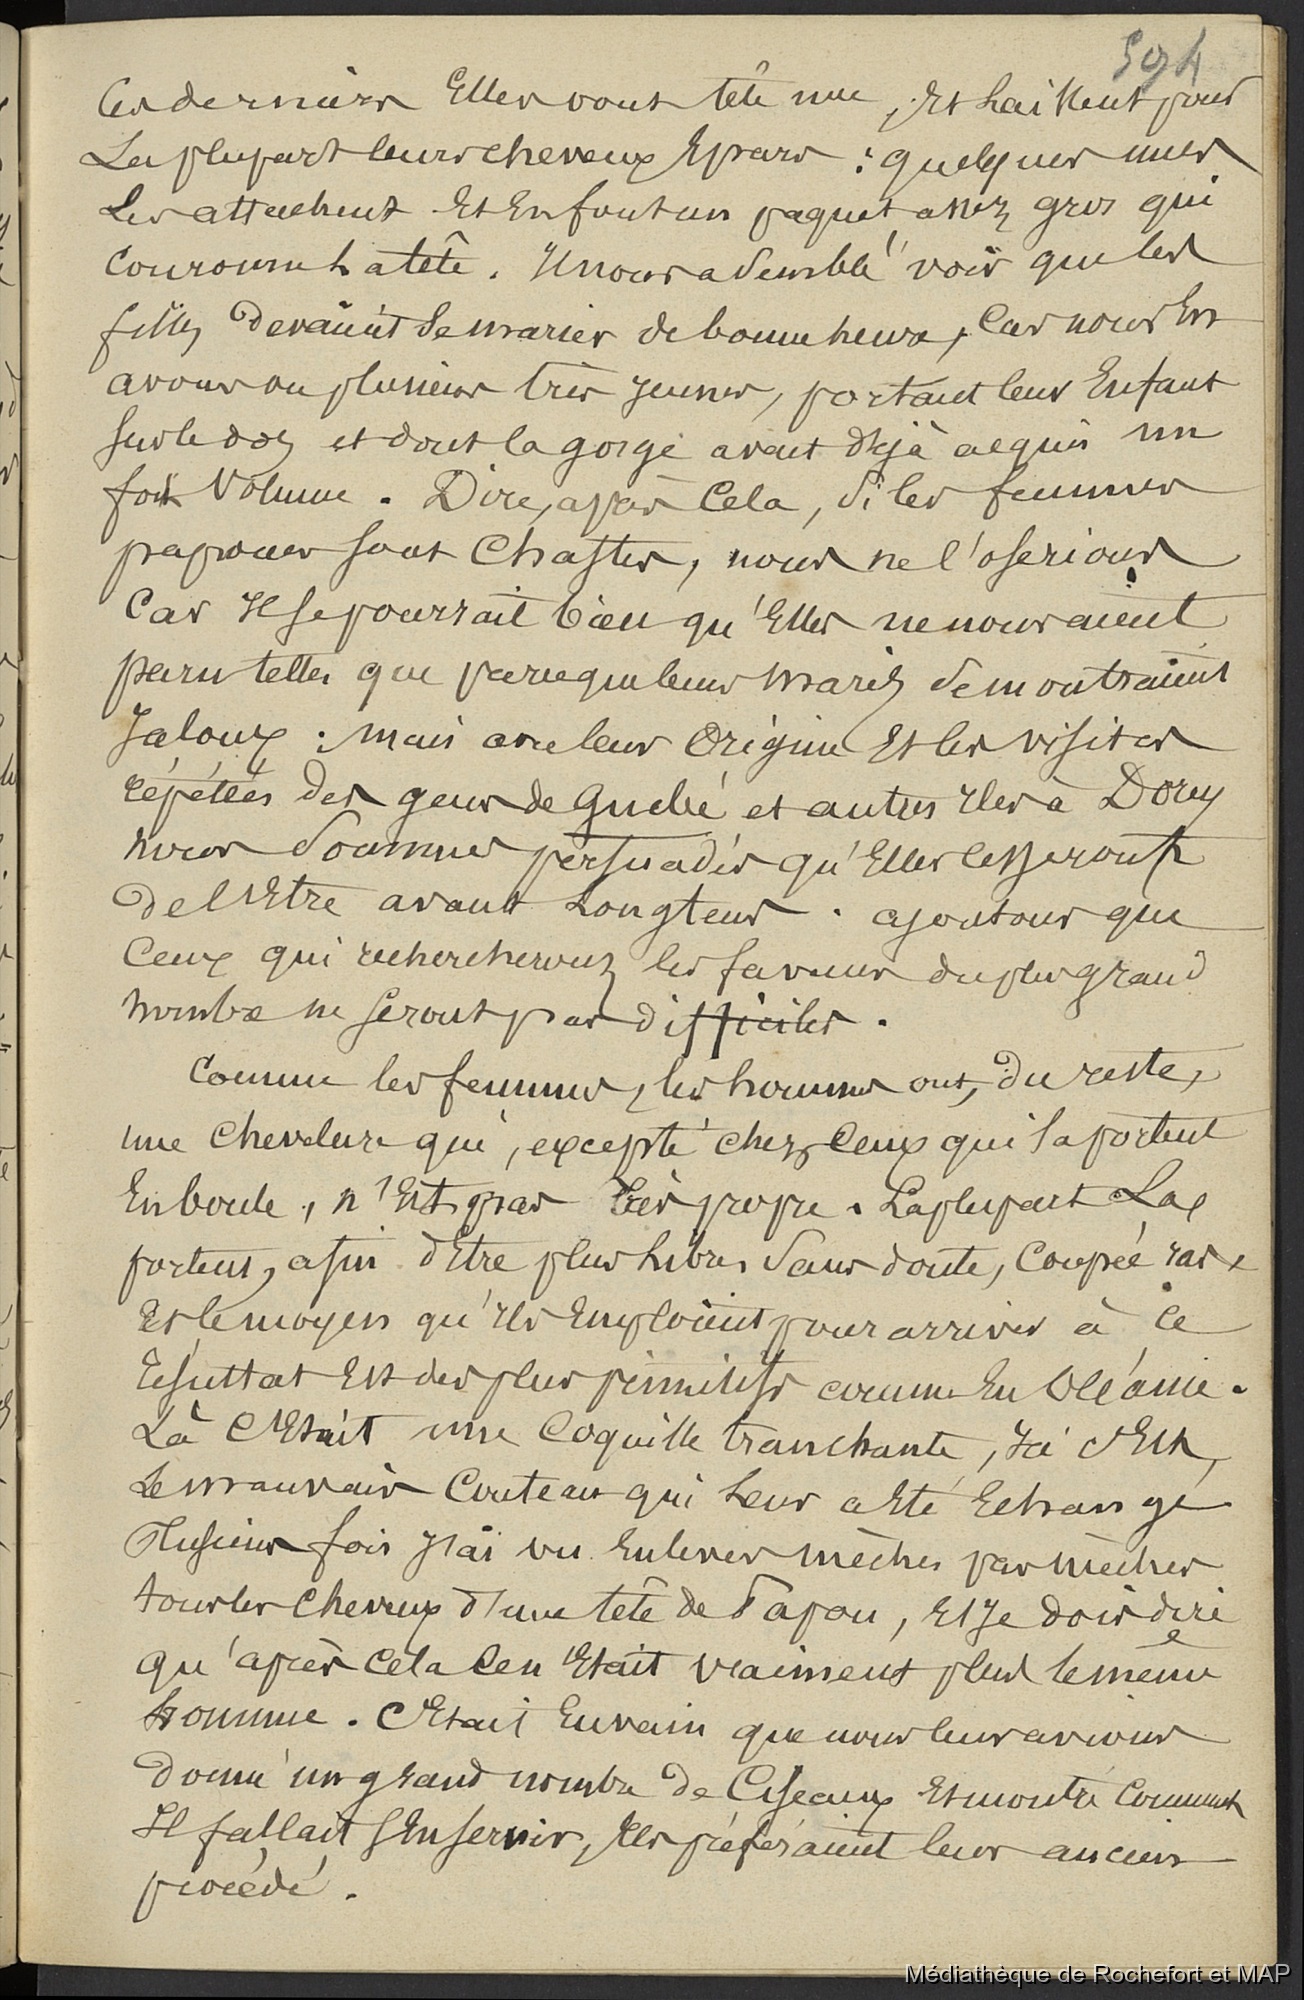 594
Ces dernières Elles vont tête nue, Et laissent pour
La plupart leurs cheveux Epars : quelques unes
Les attachent Et En font un paquet assez gros qui
Couronne la tête. Il nous a semblé voir que les
filles devaient se marier de bonne heure, Car nous En
avons vu plusieurs très jeunes, portant leur Enfant
sur le dos et dont la gorge avait déjà acquis un
fort Volume. Dire, après Cela, si les femmes
papoues sont Chastes, nous ne l'oserions
Car Il se pourrait bien qu'Elles ne nous aient
paru telles que parceque leurs Maris se montraient
Jaloux : mais avec leur Origine Et les visites
répétées des gens de Guebé et autres Iles à Dorey
nous sommes persuadés qu'Elles cesseront
de l'Etre avant Longtems. ajoutons que
Ceux qui rechercheront les faveurs du plus grand
nombre ne seront pas difficiles.
Comme les femmes, les hommes ont, du reste,
une Chevelure qui, excepté chez Ceux qui la portent
En boule, n'Est pas très propre. La plupart La
portent, afin d'Etre plus libres sans doute, Coupée ras,
Et le moyen qu'Ils Emploient pour arriver à Ce
résultat Est des plus primitifs comme En Océanie.
Là C'Etait une Coquille tranchante, Ici C'Est
Le mauvais Couteau qui leur a Eté Echangé
Plusieurs fois J'ai vu Enlever mèches par mèches
tous les Cheveux d'une tête de Papou, Et Je dois dire
qu'après Cela Ce n'Etait vraiment plus le même
homme. C'Etait En vain que nous leur avions
donné un grand nombre de Ciseaux Et montré Comment
Il fallait s'En servir, Ils préféraient leur ancien
procédé.
Médiathèque de Rochefort et MAP